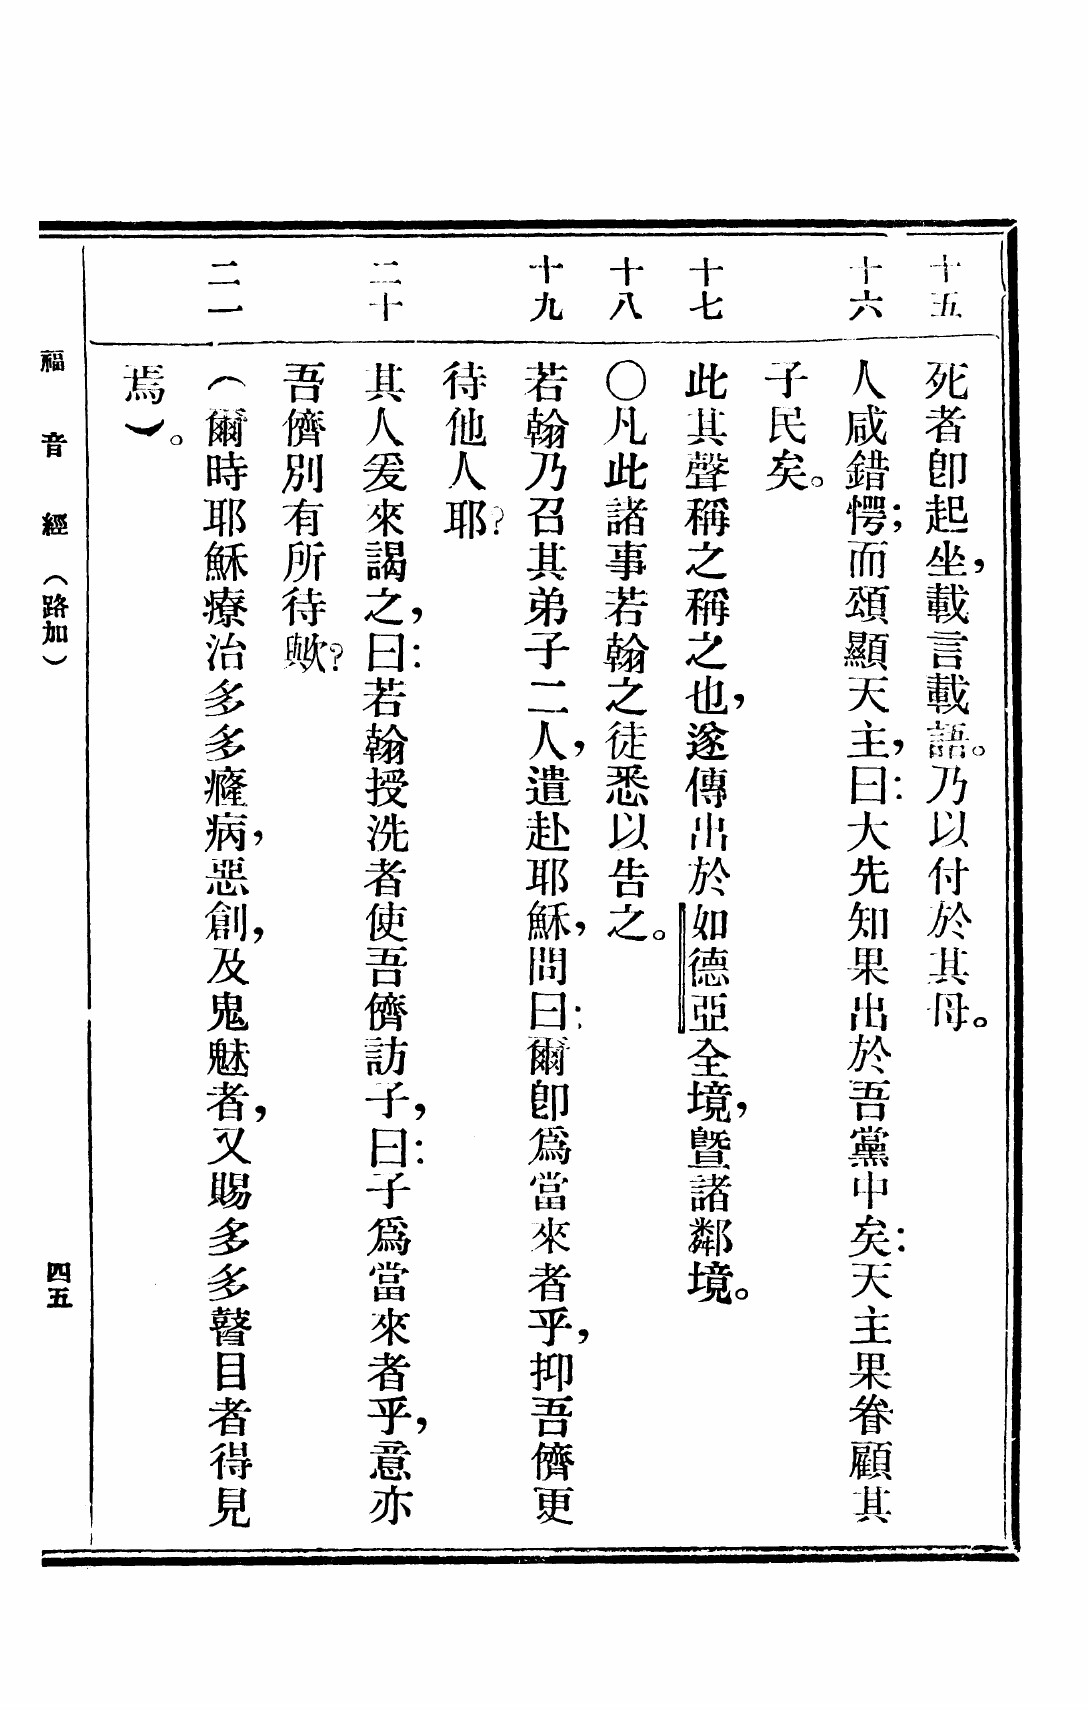 十五 死者卽起坐，載言載語。乃以付於其母。
十六 人咸錯愕；而頌顯天主，曰：大先知果出於吾黨中矣：天主果眷顧其
子民矣。
十七 此其聲稱之稱之也，遂傳出於如德亞全境，曁諸鄰境。
十八 〇凡此諸事若翰之徒悉以告之。
十九 若翰乃召其弟子二人，遣赴耶穌，問曰：爾卽爲當來者乎，抑吾儕更
待他人耶？
二十 其人爰來謁之，曰：若翰授洗者使吾儕訪子，曰：子爲當來者乎，意亦
吾儕別有所待歟？
二一 （爾時耶穌療治多多癃病，惡創，及鬼魅者，又賜多多瞽目者得見
焉）。
福音經（路加） 四五